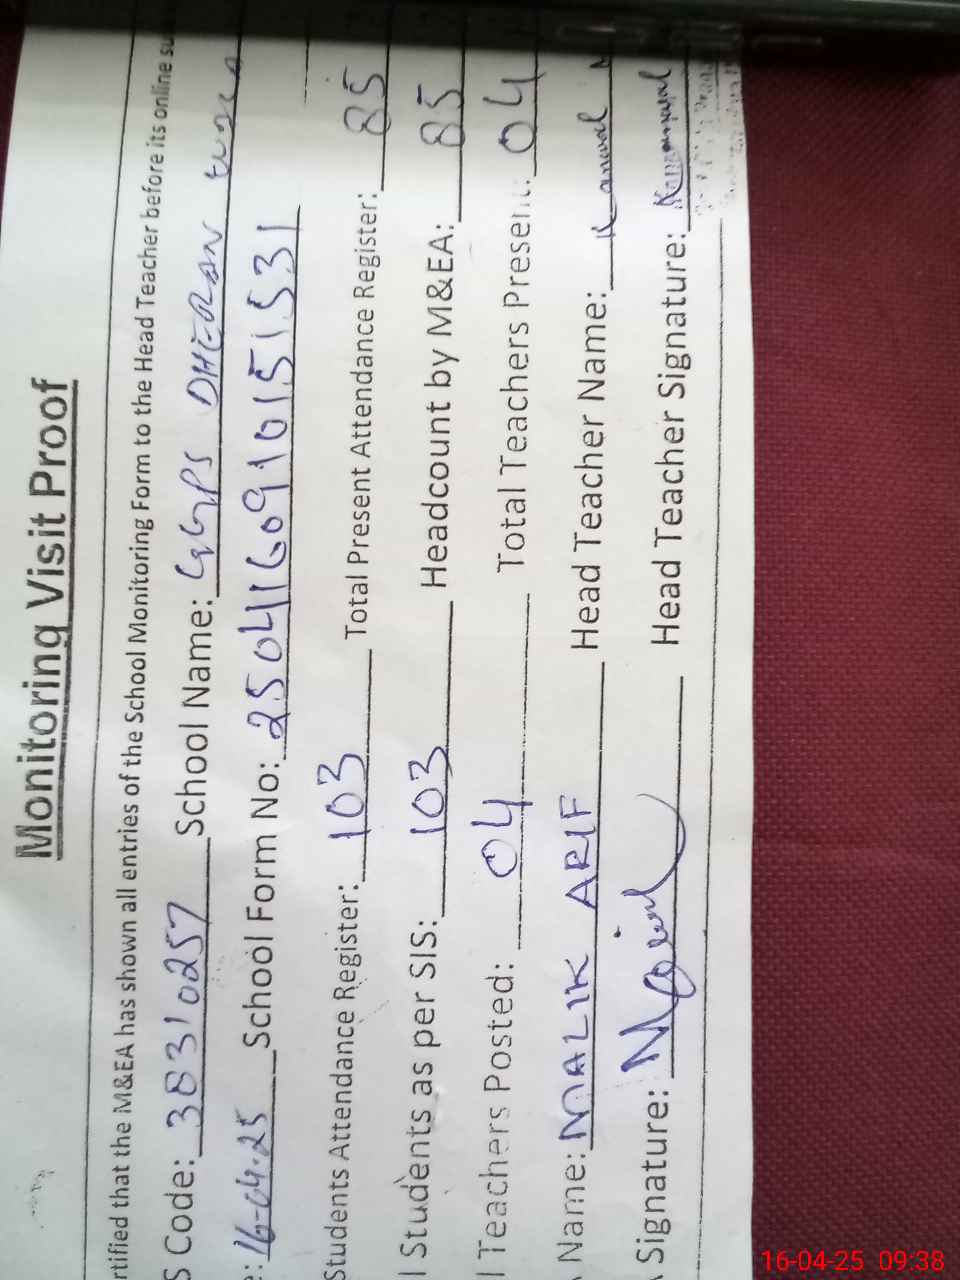 Monitoring Visit Proof
rtified that the M&EA has shown all entries of the School Monitoring Form to the Head Teacher before its online su
S Code: 38310257 School Name: GGPS DHERAN
e: 16-04-25 School Form No: 2504160910151531
Students Attendance Register: 103 Total Present Attendance Register: 85
l Students as per SIS: 103 Headcount by M&EA: 85
l Teachers Posted: 04 Total Teachers Present: 04
Name: MALIK ARIF Head Teacher Name: Kanwal
Signature: Head Teacher Signature: Kanwal
16-04-25 09:38